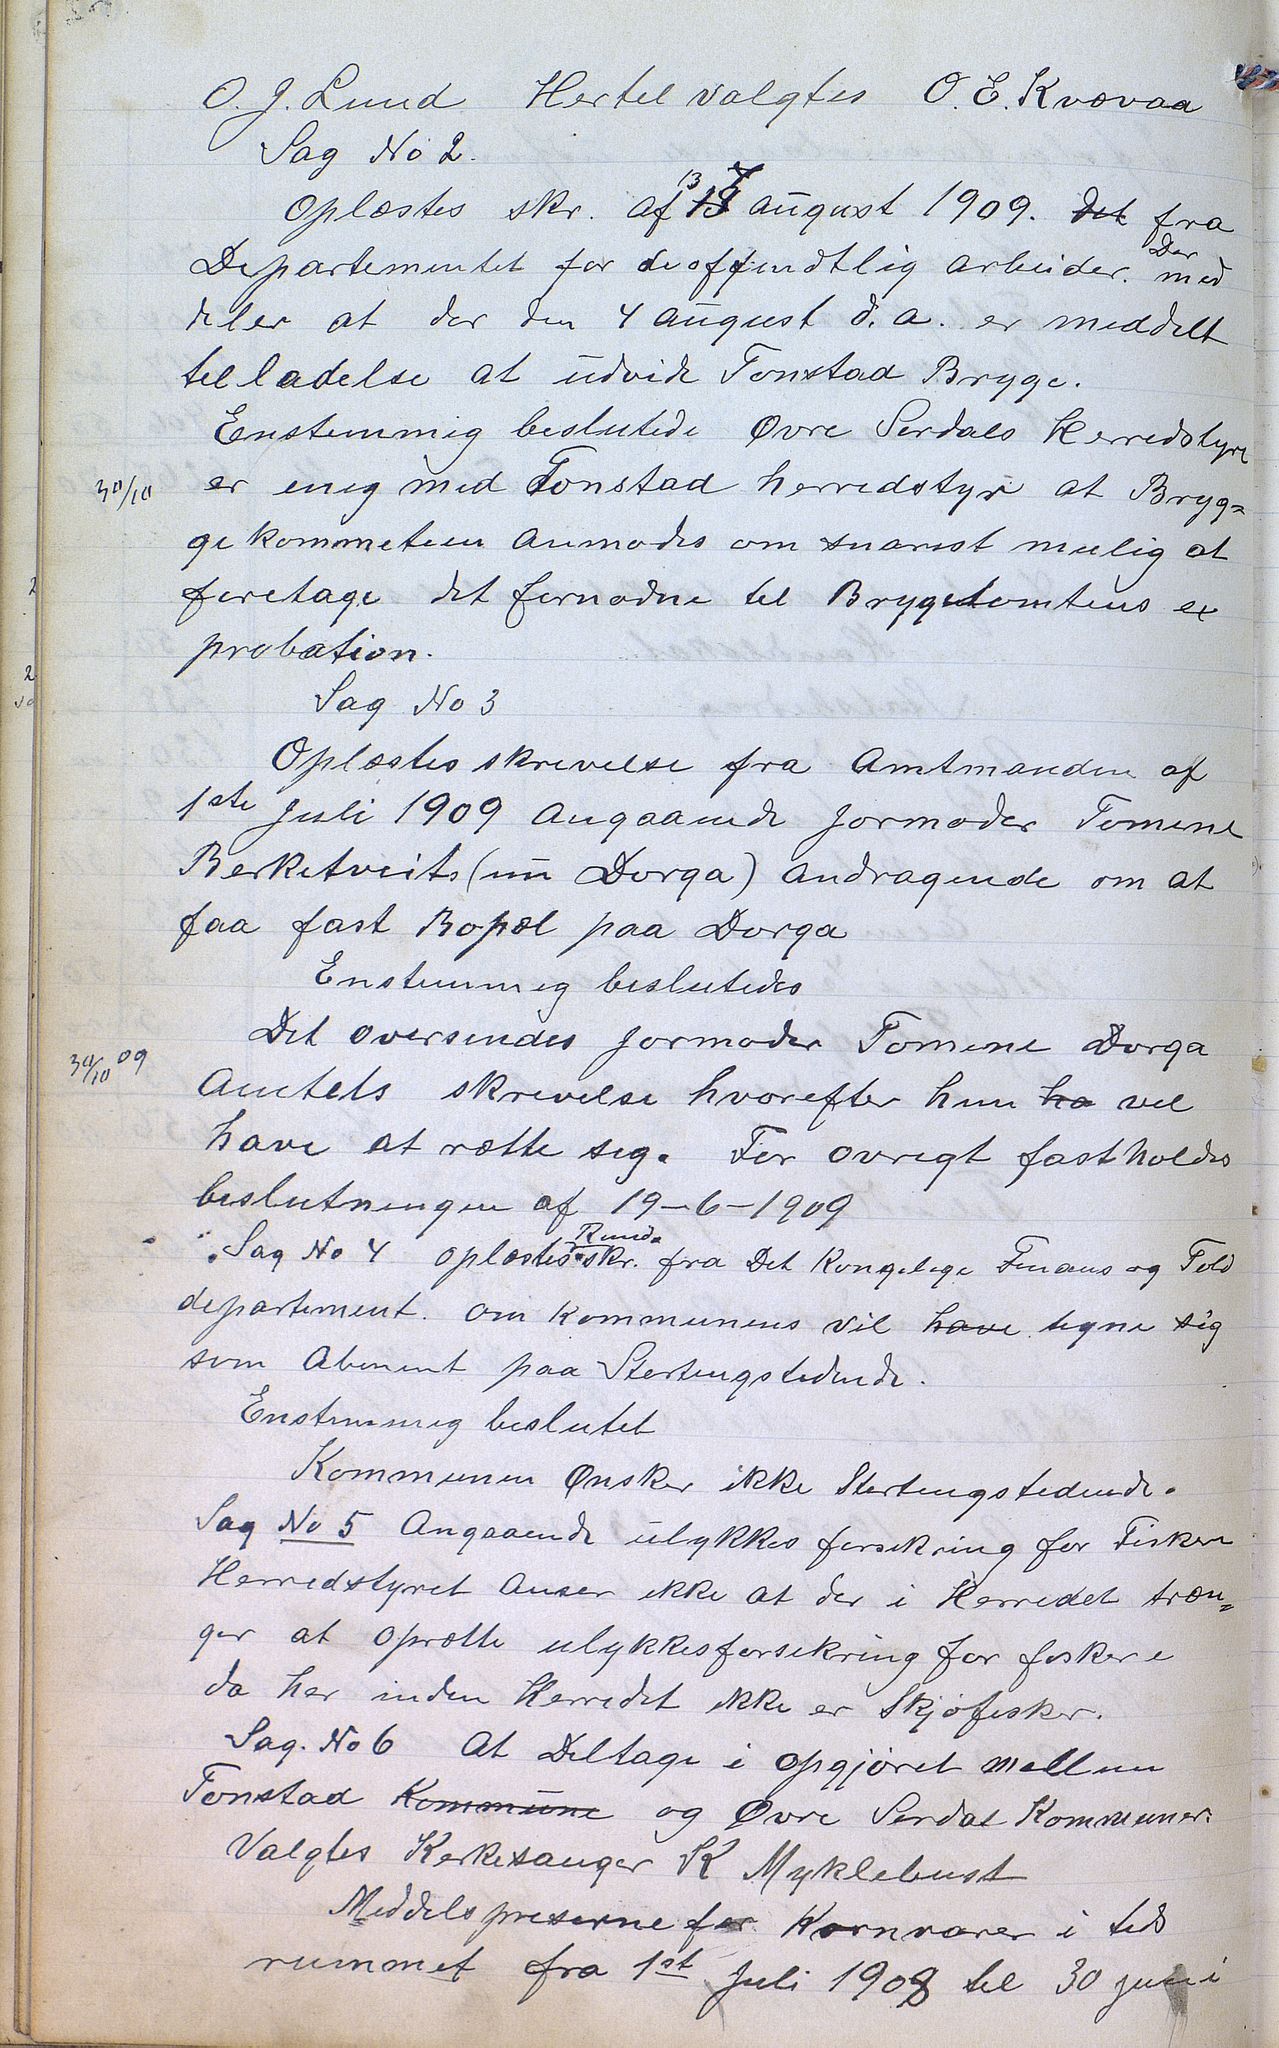 O. J. Lund Hertel valgtes O. E. Kvævaa
Sag No 2.
Oplæstes skr. af 13 august 1909. det fra
Departementet for de offendtlig arbeider. Der med
deler at der den 4 august d. a. er meddelt
telladelse at udvide Tonstad Brygge.
Enstemmig beslutede Øvre Serdals Herredstyre
30/10 er eneg med Tonstad herredstyr at Bryg=
gekommeteen anmodes om snarest mulig at
foretage det fornødne til Bryggetomtens ex
probation.
Sag No 3
Oplæstes skrevelse fra Amtmanden af
1ste Juli 1909 angaaende Jormoder Tomine
Berketveits (nu Dorga) andragende om at
faa fast Bopæl paa Dorga
Enstemmig beslutedes
Det oversendes Jormoder Tomine Dorga
30/10 09
Amtets skrevelse hvorefter hun ha vel
have at rætte seg. For øvregt fastholdes
beslutningen af 19-6-1909
Sag No 4 oplæstes Rund. skr. fra Det Kongelege Finans og Told
departement. om Kommunens vil have tegne sig
som Abonent paa Stortengstedende.
Enstemmeg beslutet
Kommunen Ønsker ikke Stortengstedende.
Sag No 5 Angaaende ulykkes forsekring for Fiskere
Herredstyret Anser ikke at der i Herredet træn=
ger at oprætte ulykkesforsekring for fiskere
da her inden Herredet ikke er Skjøfisker.
Sag. No 6 At Deltage i opgjøret mellem
Tonstad Kommune og Øvre Serdal Kommuner.
Valgtes Kerkesanger K Myklebust
Meddelspreserne for Kornvarer i teds
rummet fra 1st Juli 1908 tel 30 juni